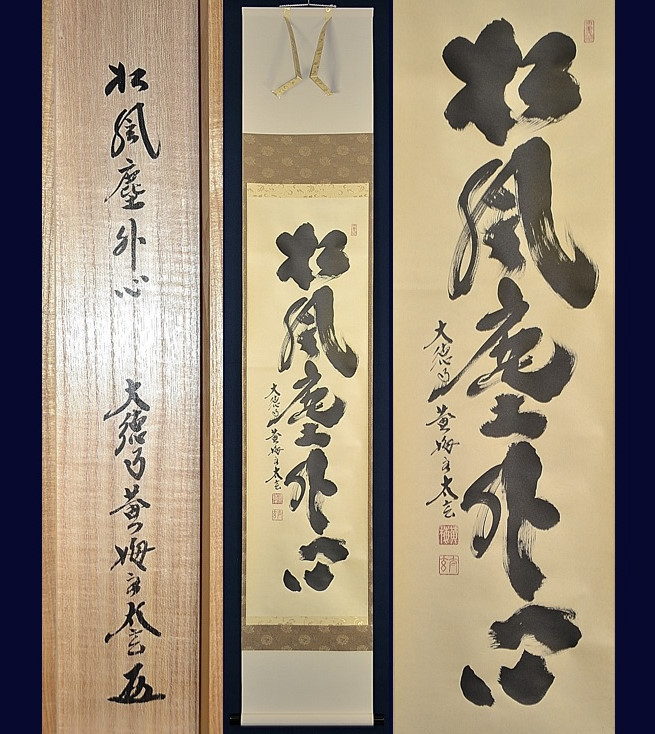 松風塵外心 大徳寺黄梅太玄
松風塵外心
大徳寺黄梅太玄
松風塵外心
大徳寺黄梅太玄